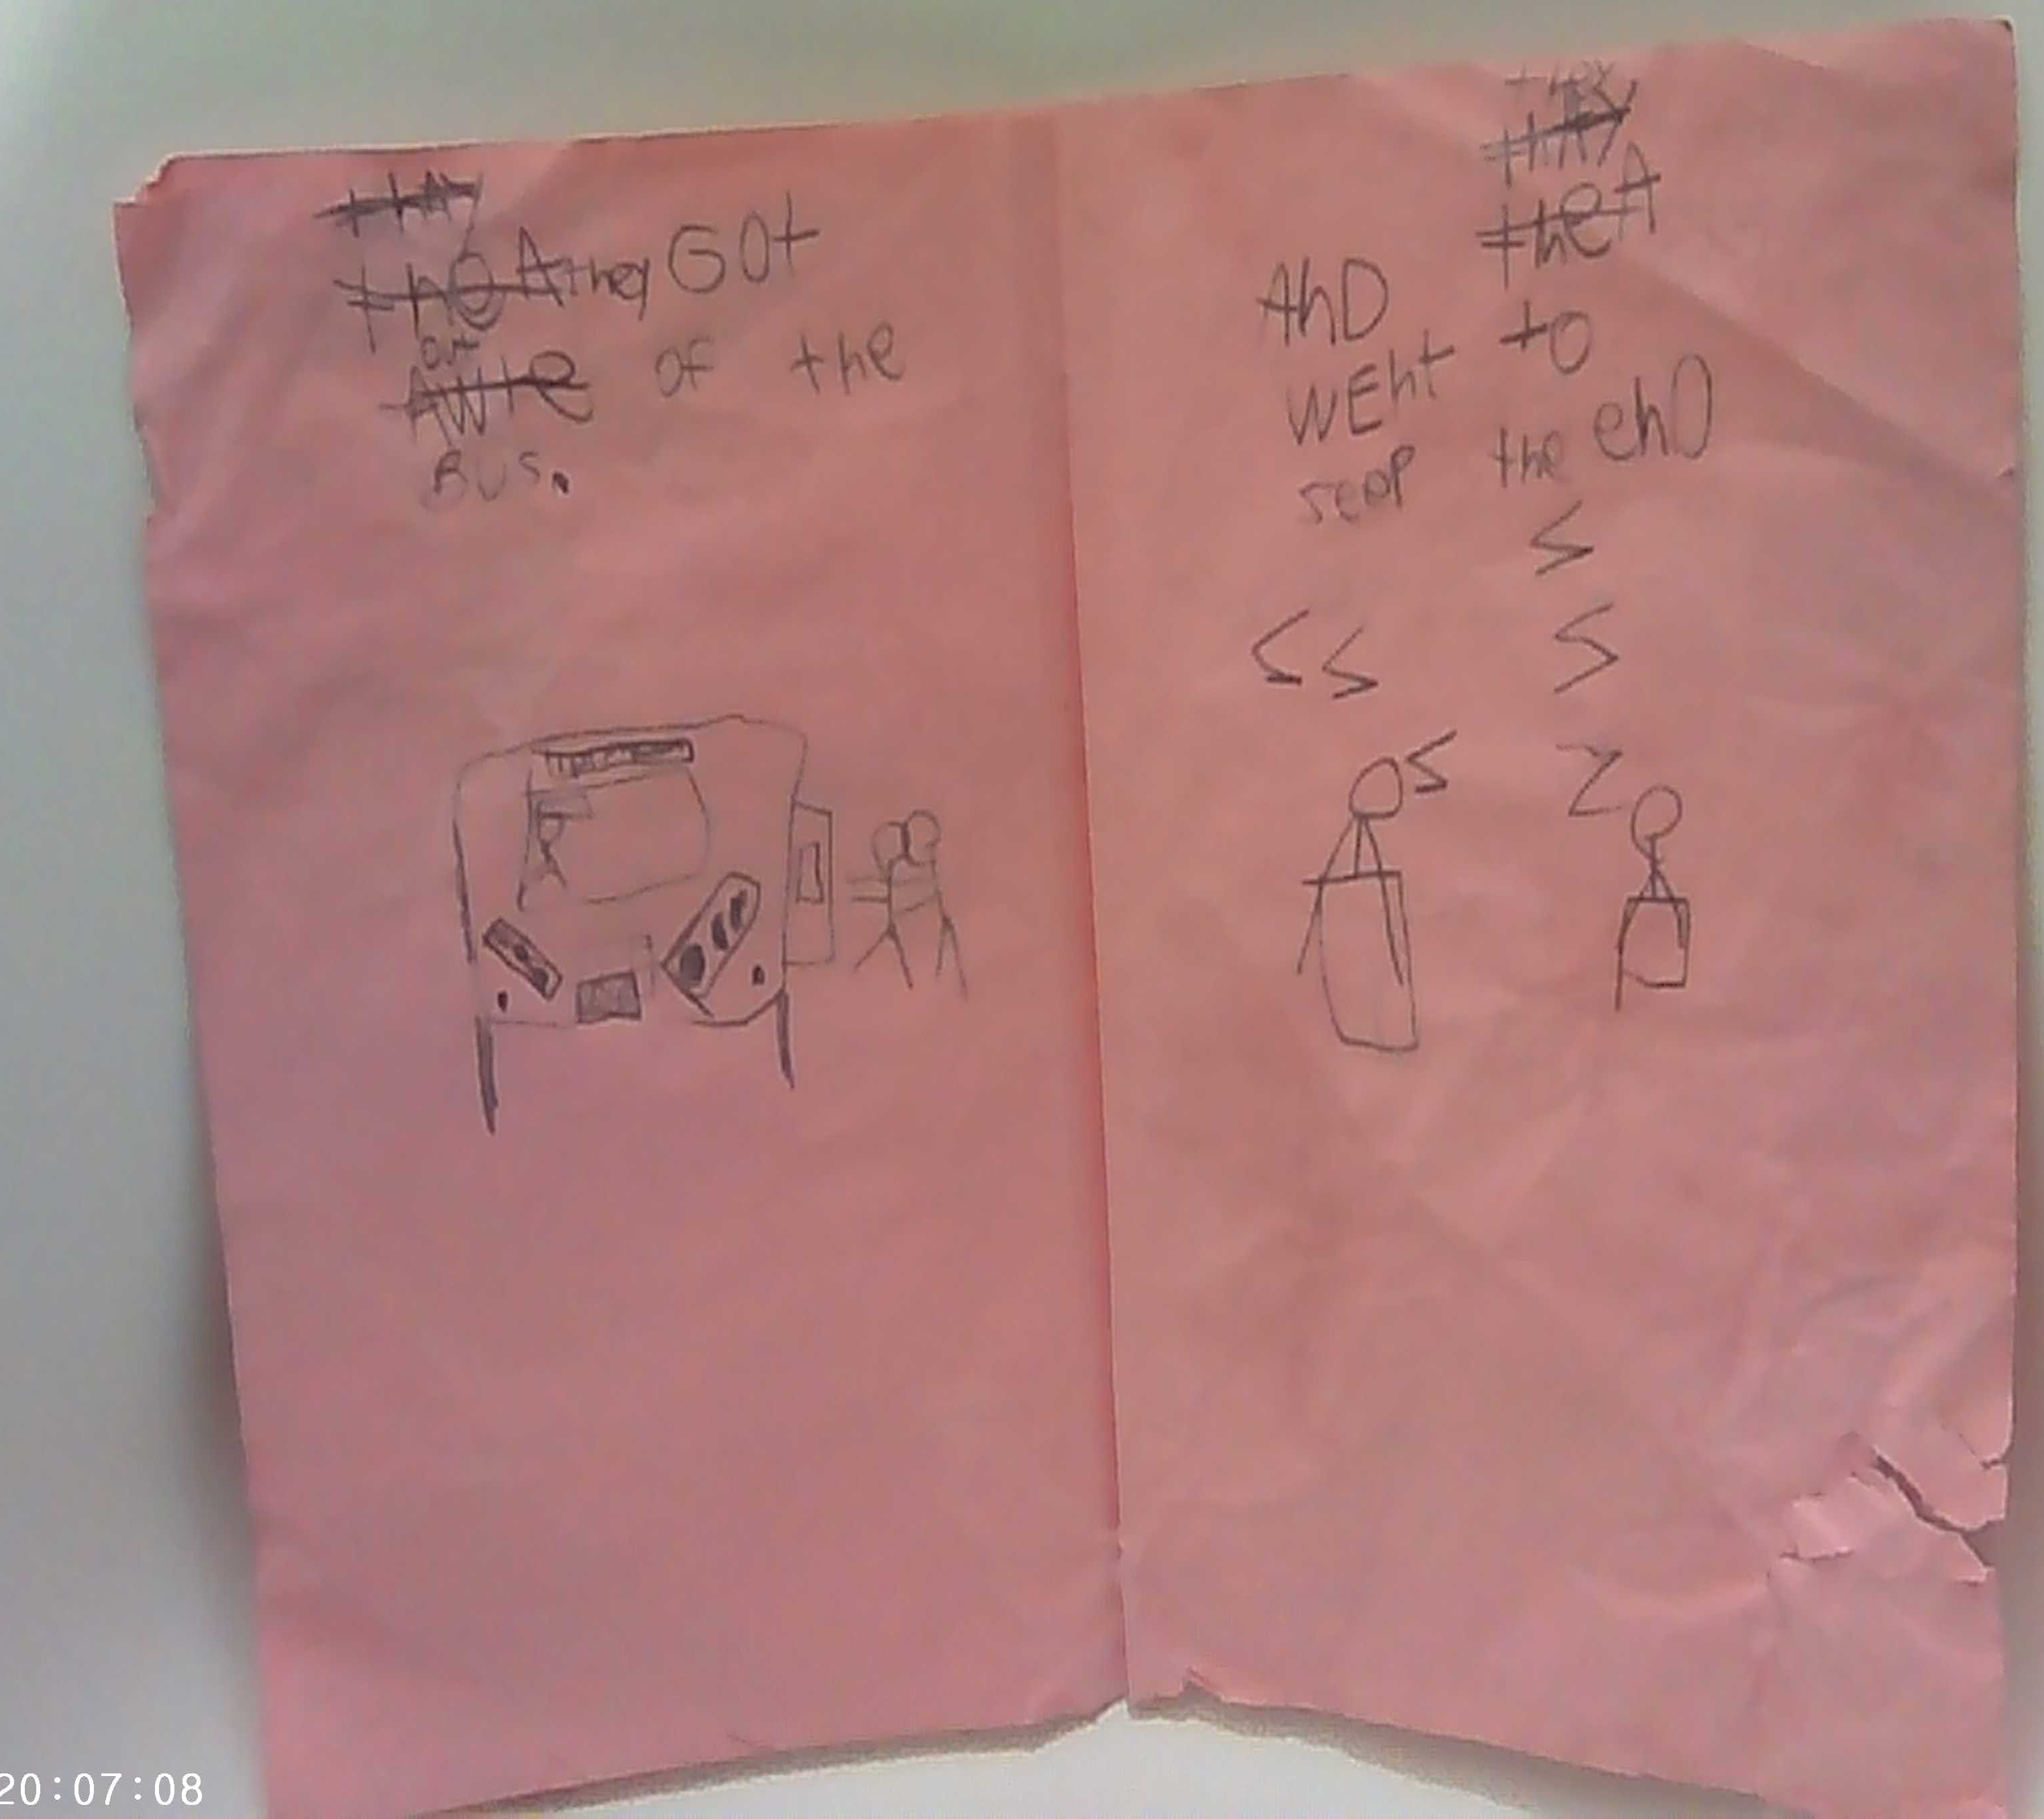 thAy
the A they GOt
out
AWte of the
BUS.
they
thAy
the A
AhD
WEht to
seap the ehD
S
S S S
S Z
20:07:08